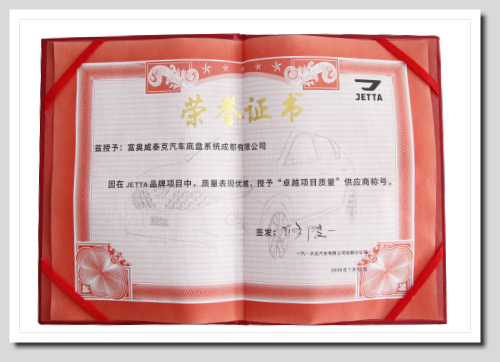 荣誉证书
JETTA
兹授予：富奥威泰克汽车底盘系统成都有限公司
因在 JETTA 品牌项目中，质量表现优越，授予“卓越项目质量”供应商称号。
签发：
一汽-大众汽车有限公司成都分公司